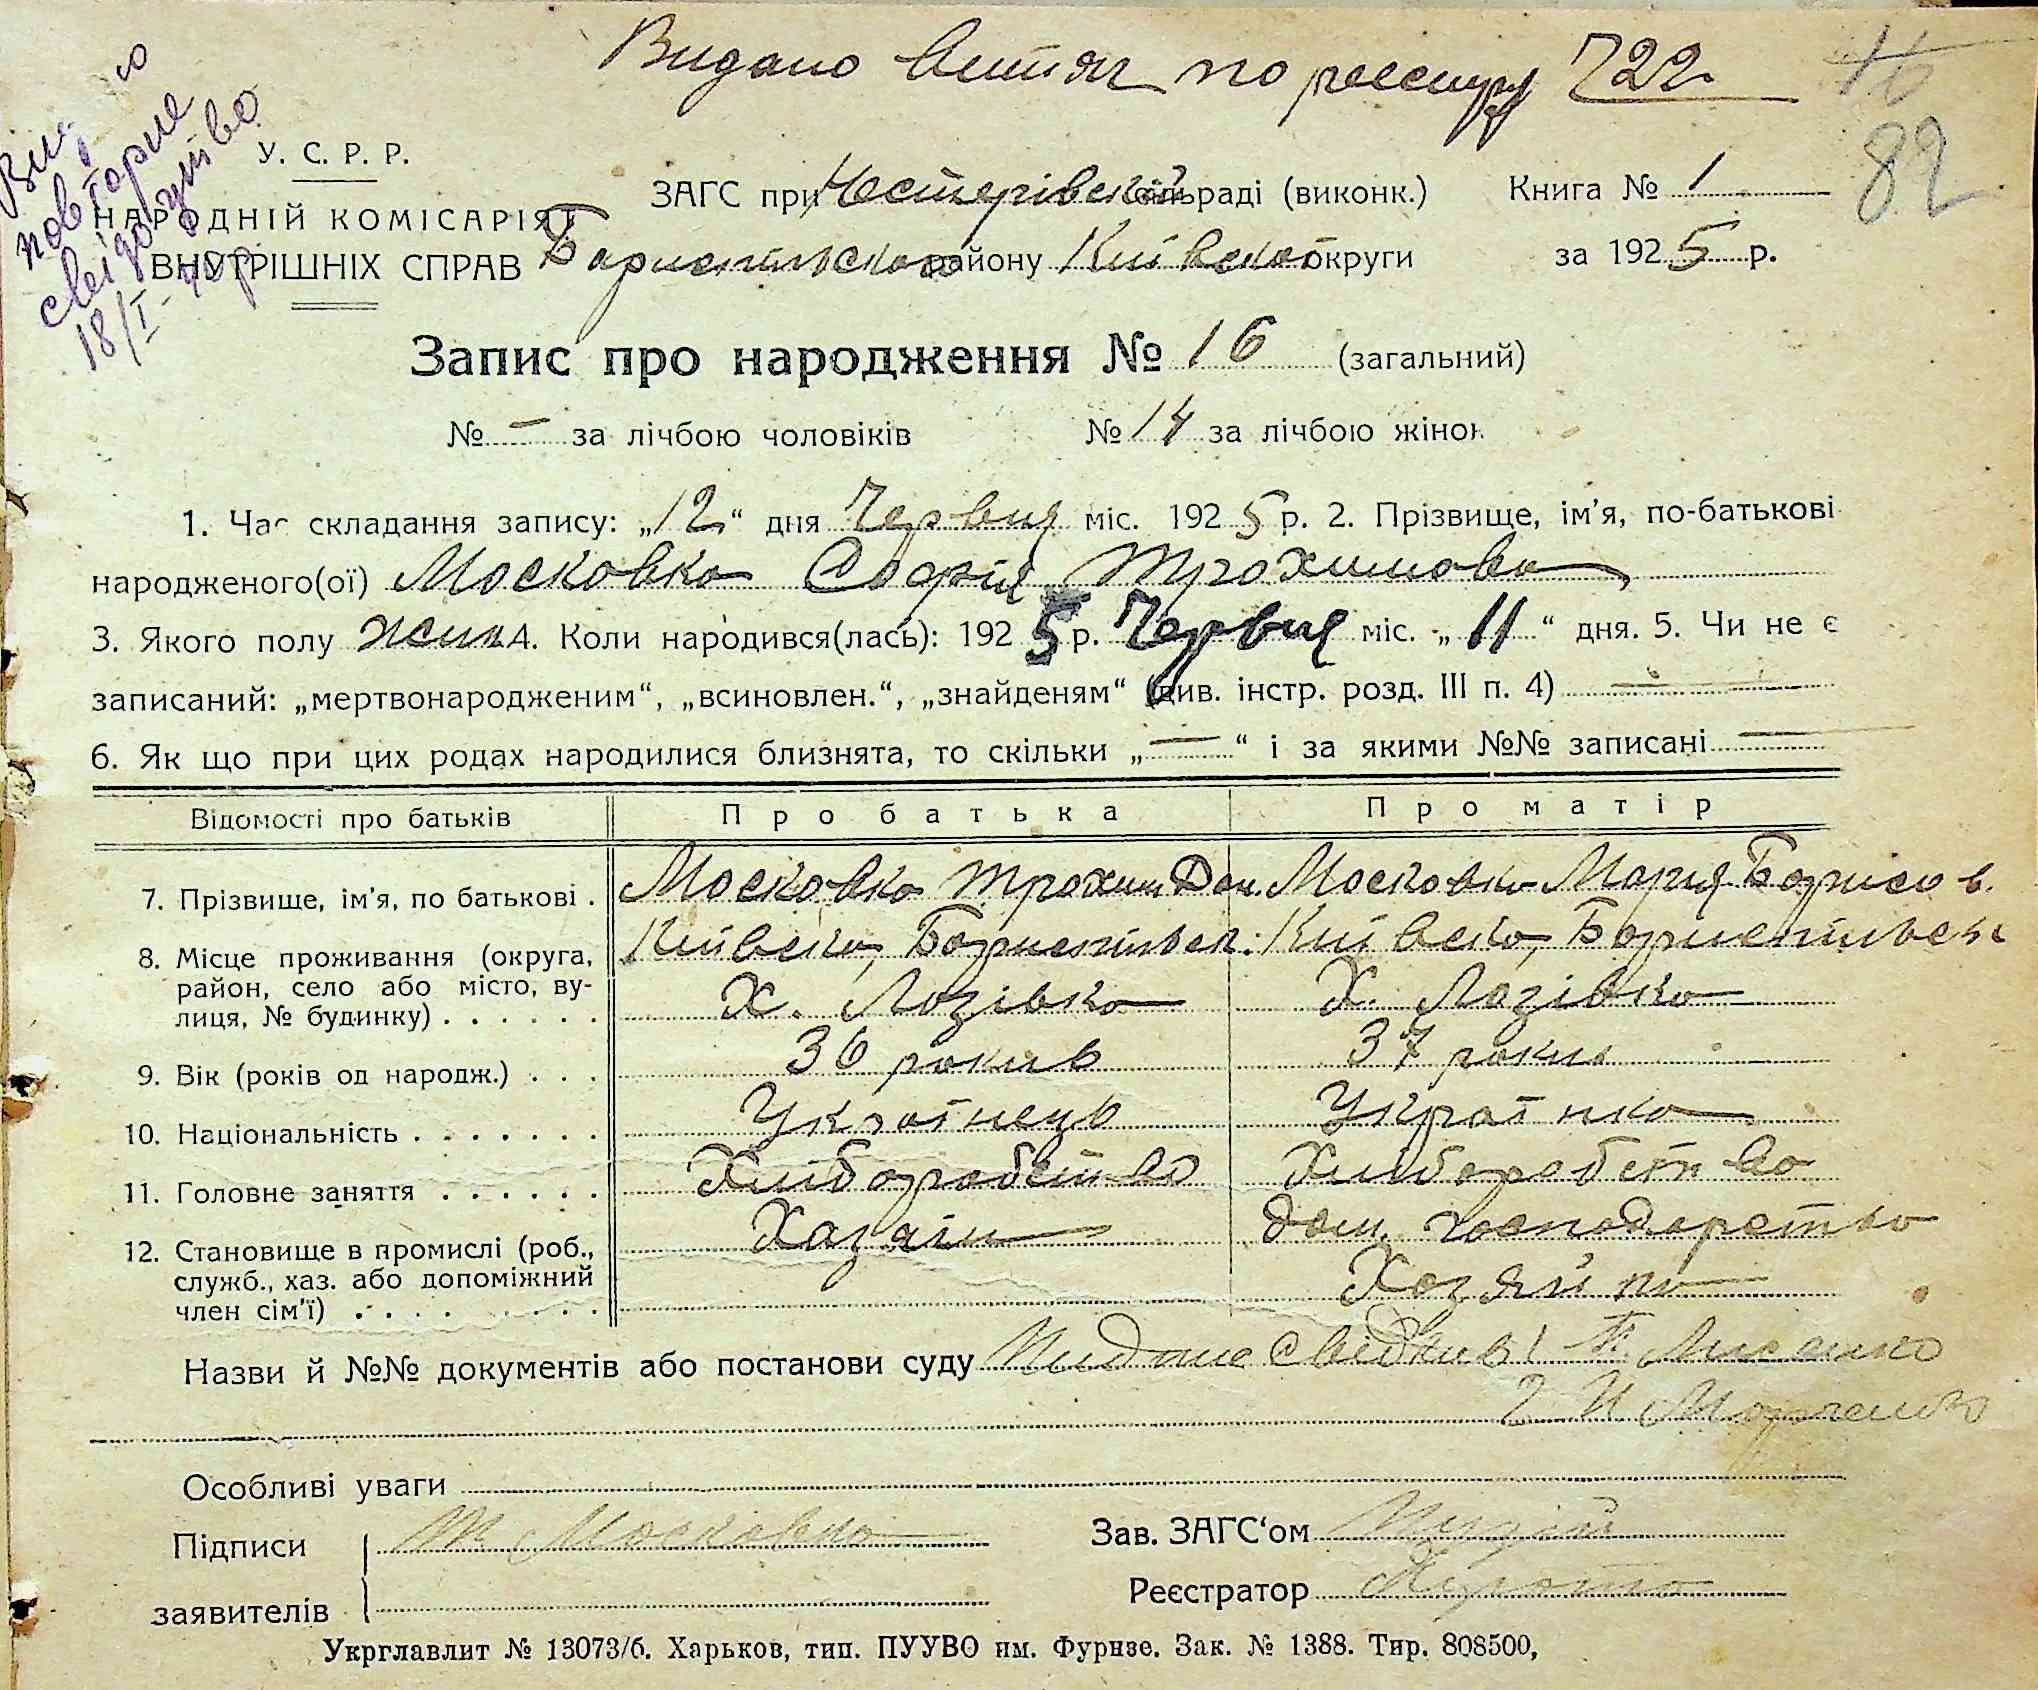 Видано витяг по реєстру 722
16
82
Видано
повторне
свідоцтво
18/I-40р
У. С. Р. Р.
НАРОДНІЙ КОМІСАРІЯТ
ВНУТРІШНІХ СПРАВ
ЗАГС при Нестерівській сільраді (виконк.) Книга № 1
Бориспільського району Київської округи за 1925 р.
Запис про народження № 16 (загальний)
№ — за лічбою чоловіків № 14 за лічбою жінок
1. Час складання запису: „12“ дня Червня міс. 1925 р. 2. Прізвище, ім’я, по-батькові
народженого(ої) Московка Софія Трохимовна
3. Якого полу жін. 4. Коли народився(лась): 1925 р. Червня міс. „11“ дня. 5. Чи не є
записаний: „мертвонародженим“, „всиновлен.“, „знайденям“ (див. інстр. розд. III п. 4) —
6. Як що при цих родах народилися близнята, то скільки „—“ і за якими №№ записані —
Відомості про батьків Про батька Про матір
7. Прізвище, ім’я, по батькові . Московка Трохим Дан. Московка Мария Борисов.
8. Місце проживання (округа, Київска, Бориспільск. Київска, Бориспільск
район, село або місто, ву- Х. Лозівка Х. Лозівка
лиця, № будинку) . . . . . .
9. Вік (років од народж.) . . . 36 рокив 37 рокив
10. Національність . . . . . . . Українець Українка
11. Головне заняття . . . . . . Хлиборобство Хлиборобство
12. Становище в промислі (роб., Хазяїн дом. господарство
служб., хаз. або допоміжний Хозяйка
член сім’ї) . . . . . . . . .
Назви й №№ документів або постанови суду свідкив 1 Лисенко
2 И Марченко
Особливі уваги
Підписи Т Московка Зав. ЗАГС‘ом
заявителів Реєстратор
Укрглавлит № 13073/б. Харьков, тип. ПУУВО им. Фрунзе. Зак. № 1388. Тир. 808500,